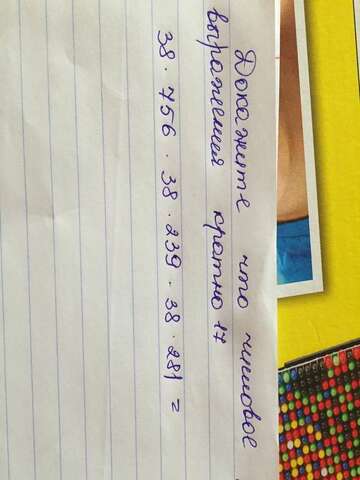 Докажите что числовое
выражения кратно 17
38 · 756 · 38 · 239 - 38 · 281 =